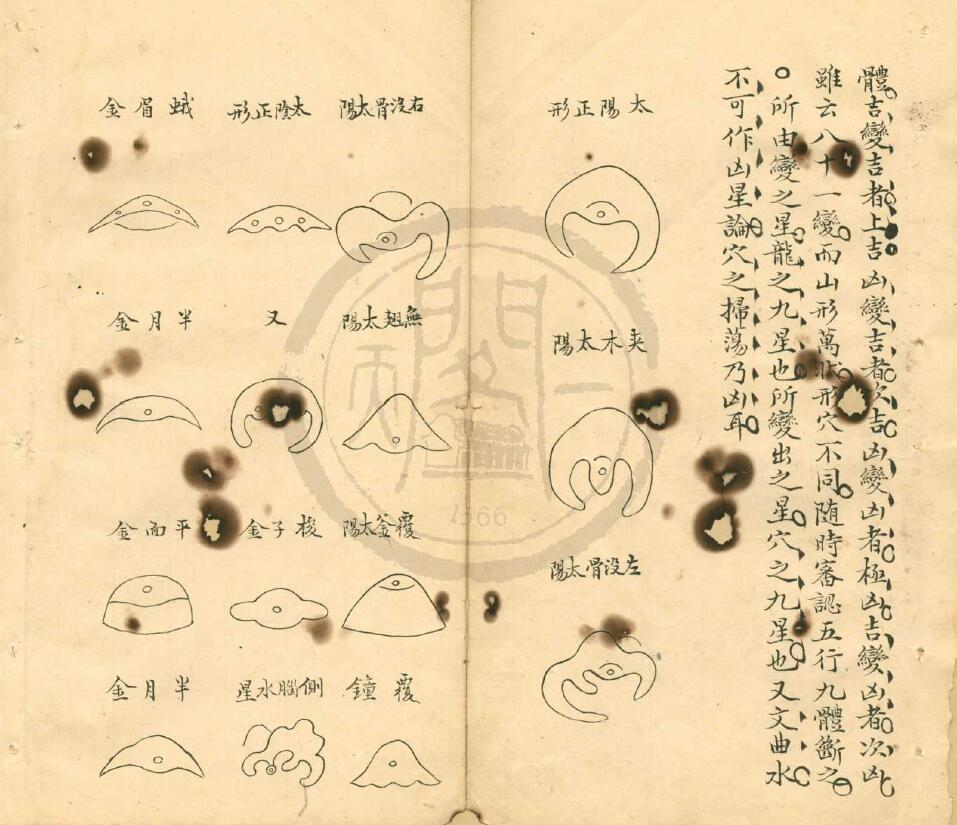 體吉變吉者上吉凶變吉者次吉凶變凶者極凶吉變凶者次凶
雖云八十一變而山形萬狀形穴不同随時審認五行九體斷之
所由變之星龍之九星也所變出之星穴之九星也又文曲水
不可作凶星論穴之掃蕩乃凶耳
太陽正形
夹木太陽
左没骨太陽
右没骨太陽
無翅太陽
覆釜太陽
覆鐘
太陰正形
又
梭子金
側腦水星
蛾眉金
半月金
平面金
半月金
1366